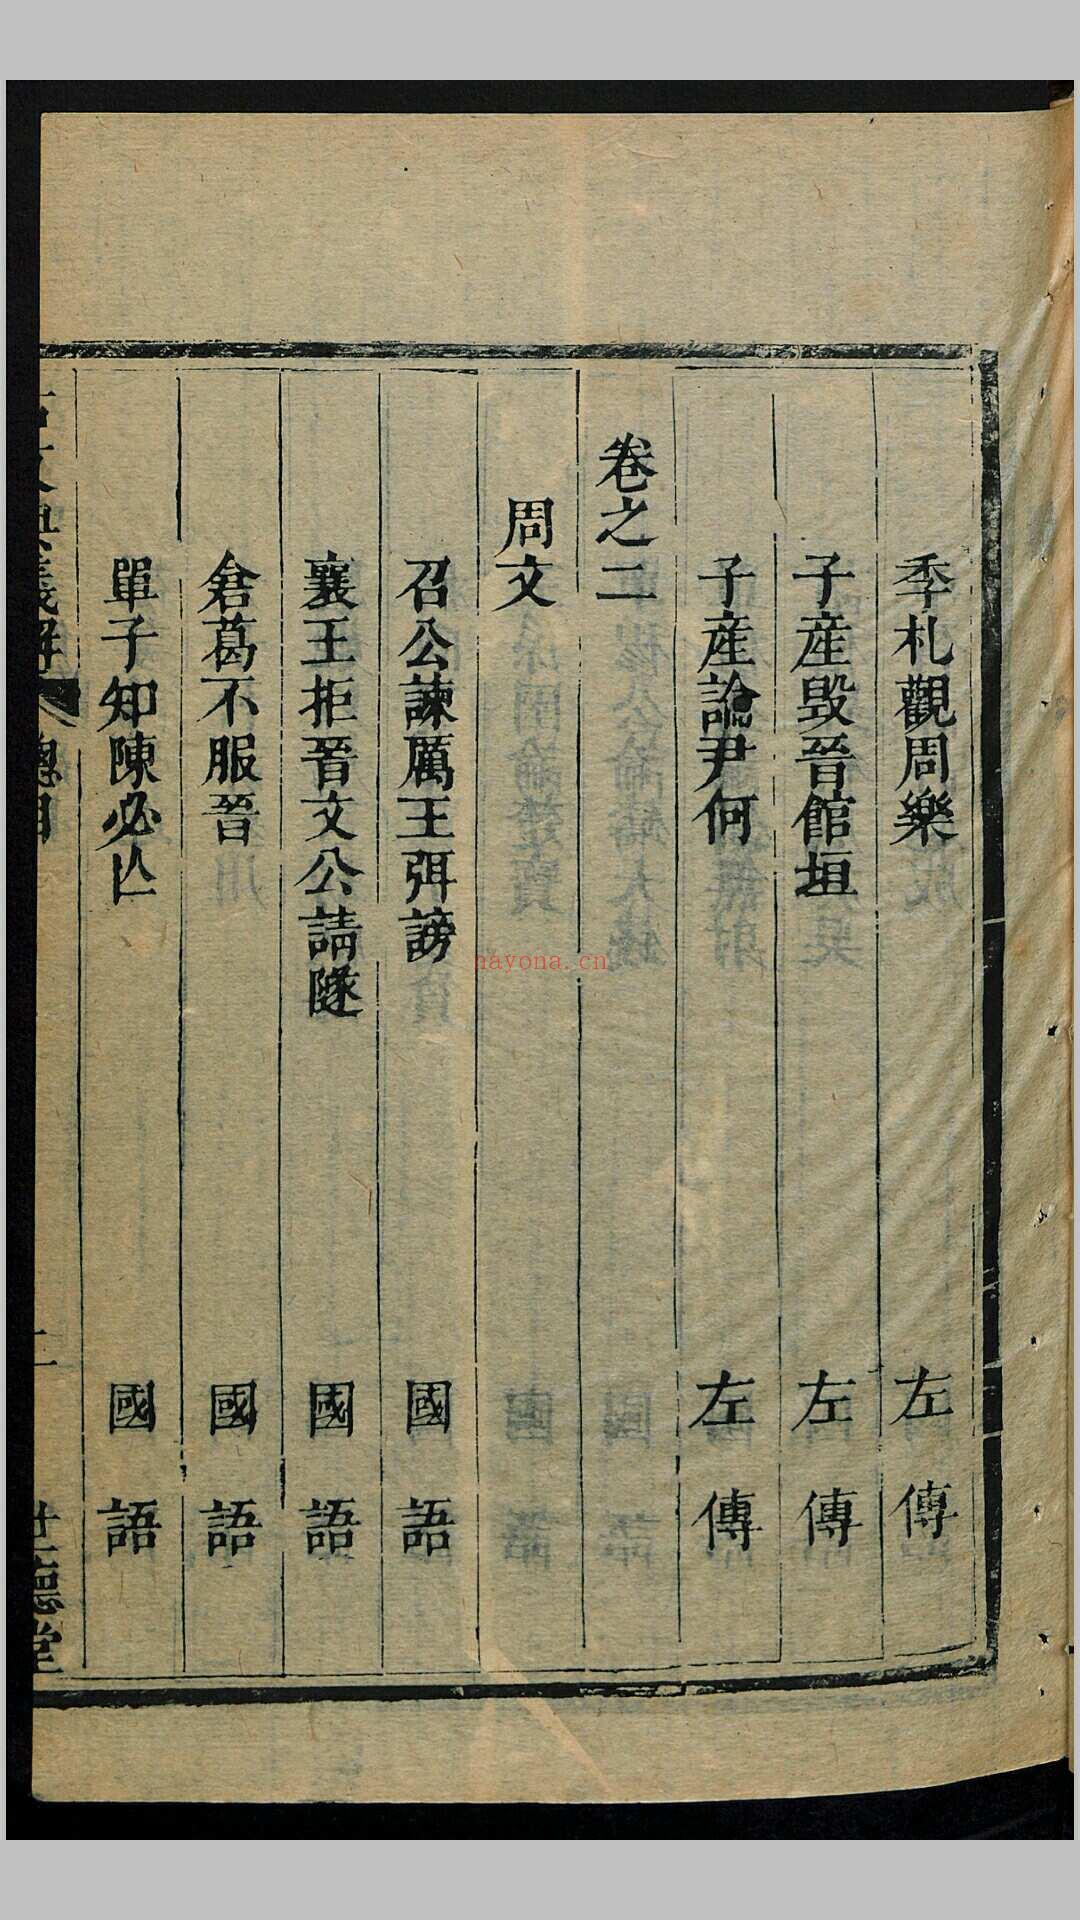 季札觀周樂 左傳
子產毀晉館垣 左傳
子產論尹何 左傳
卷之二
周文
召公諫厲王弭謗 國語
襄王拒晉文公請隧 國語
倉葛不服晉 國語
單子知陳必亾 國語
總目 二 世德堂
nayona.cn